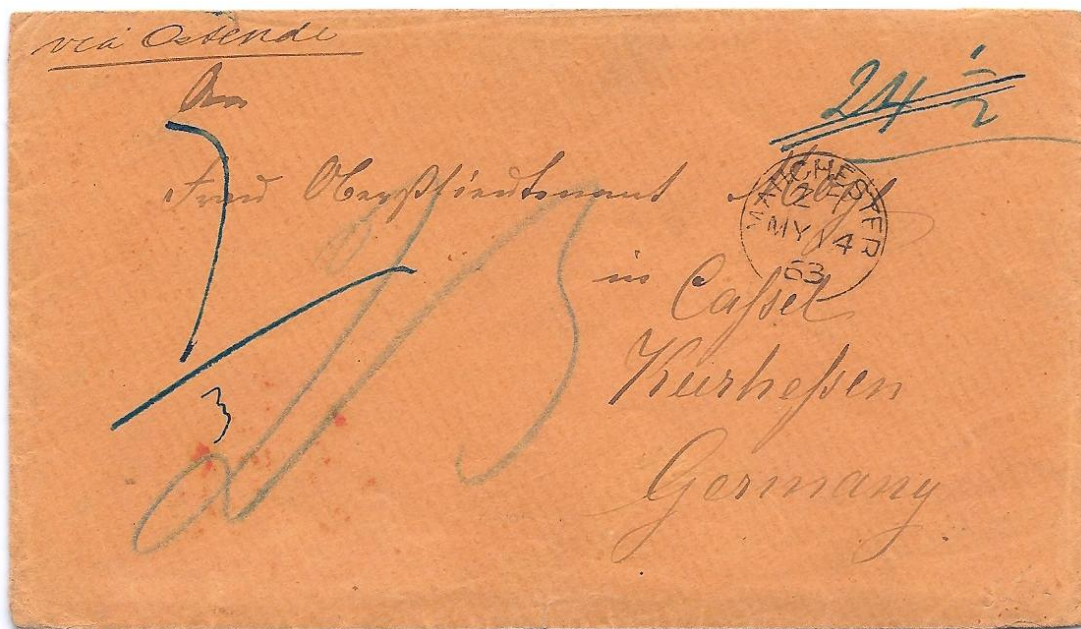 via Ostende
24 1/2
An
Frau Oberstlieutenant
MANCHESTER
MY 14
63
in Cassel
Kurhessen
Germany
3